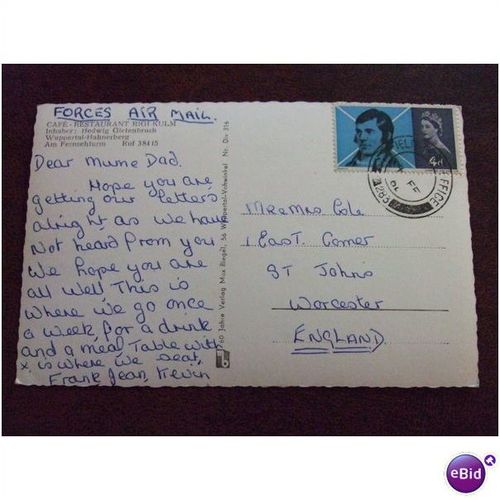 FORCES AIR MAIL.
CAFÉ-RESTAURANT RIGI-KULM
Inhaber: Hedwig Gietenbruch
Wuppertal-Hahnerberg
Am Fernsehturm Ruf 38415
Dear Mum e Dad.
Hope you are
getting our letters
alright as we have
Not heard from you
We hope you are
all well This is
where we go once
a week for a drink
and a meal Table with
x, is where we seat,
Frank Jean, Kevin
60 Jahre Verlag Max Biegel, 56 Wuppertal-Vohwinkel Nr. Div 316
4d
OFFICE
Mr e Mrs Cole
1 East. Comer
ST Johns
Worcester
ENGLAND.
eBid